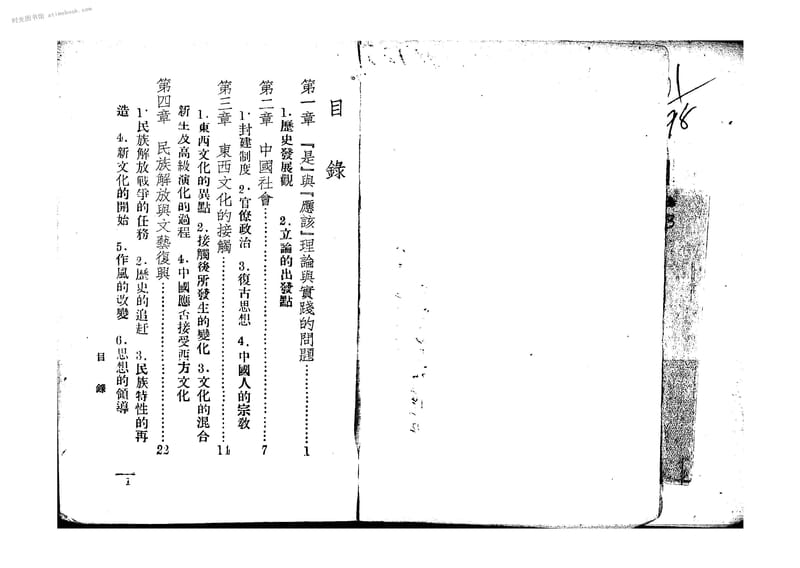 时光图书馆 · atimebook.com
目錄
第一章 『是』與『應該』理論與實踐的問題……………………1
1.歷史發展觀 2.立論的出發點
第二章 中國社會……………………7
1.封建制度 2.官僚政治 3.復古思想 4.中國人的宗敎
第三章 東西文化的接觸……………………14
1.東西文化的異點 2.接觸後所發生的變化 3.文化的混合
新生及高級演化的過程 4.中國應否接受西方文化
第四章 民族解放與文藝復興……………………22
1.民族解放戰爭的任務 2.歷史的追赶 3.民族特性的再
造 4.新文化的開始 5.作風的改變 6.思想的領導
目錄
1